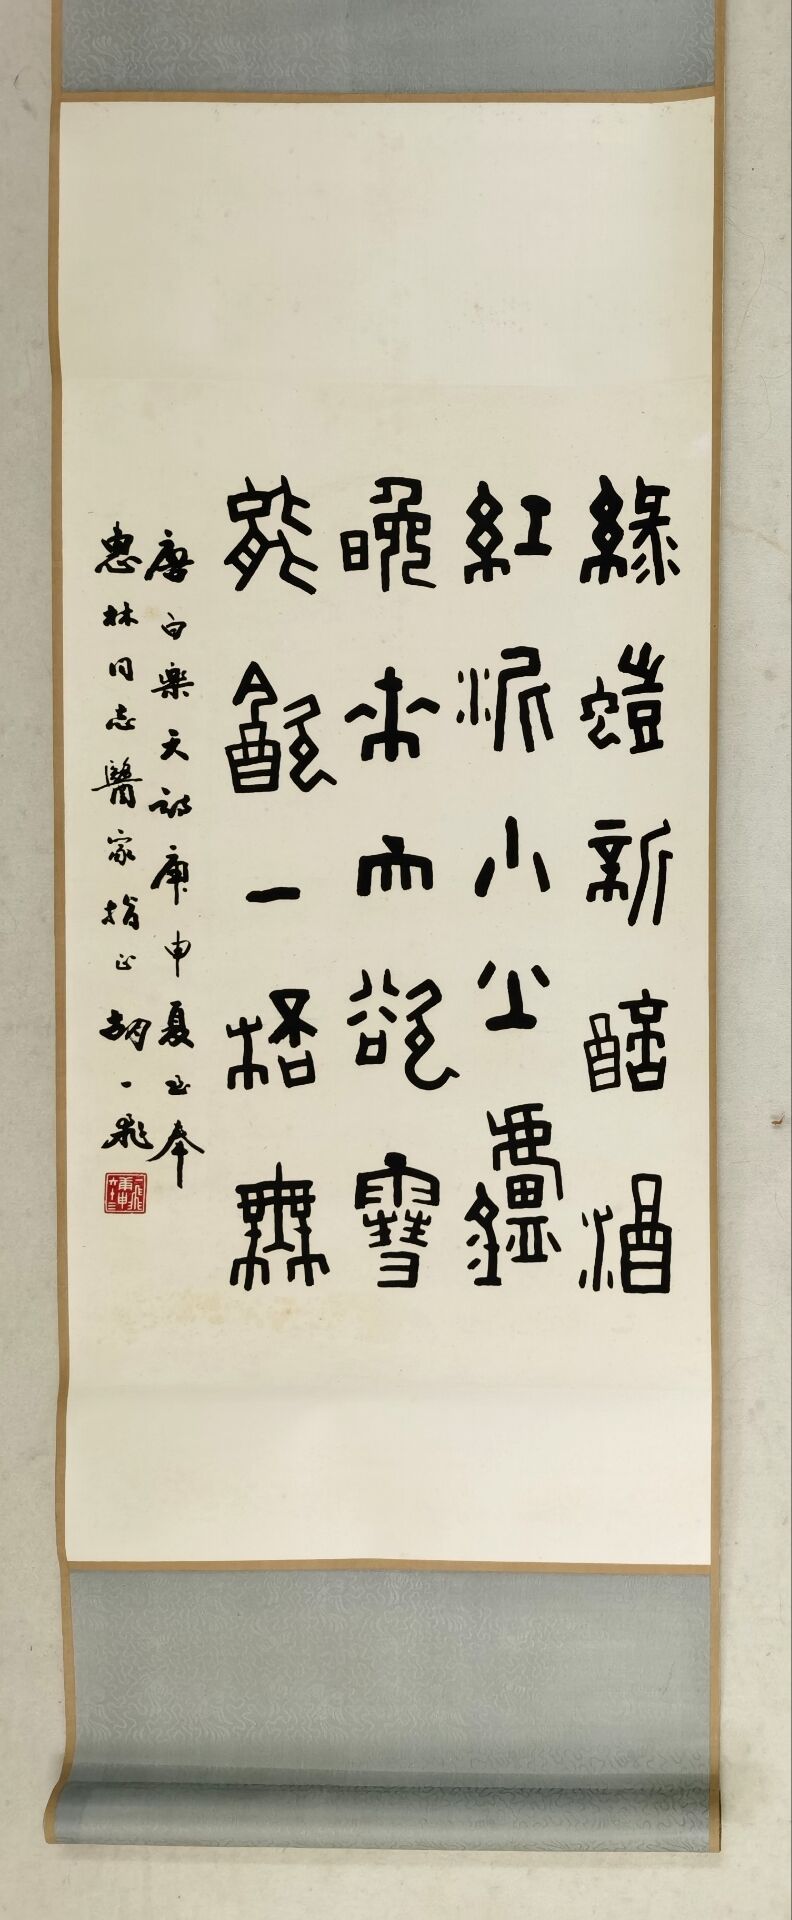 綠螘新醅酒
紅泥小火鑪
晚來天欲雪
能飲一桮無
唐白樂天詩庚申夏書奉
惠林同志醫家指正 胡一飛